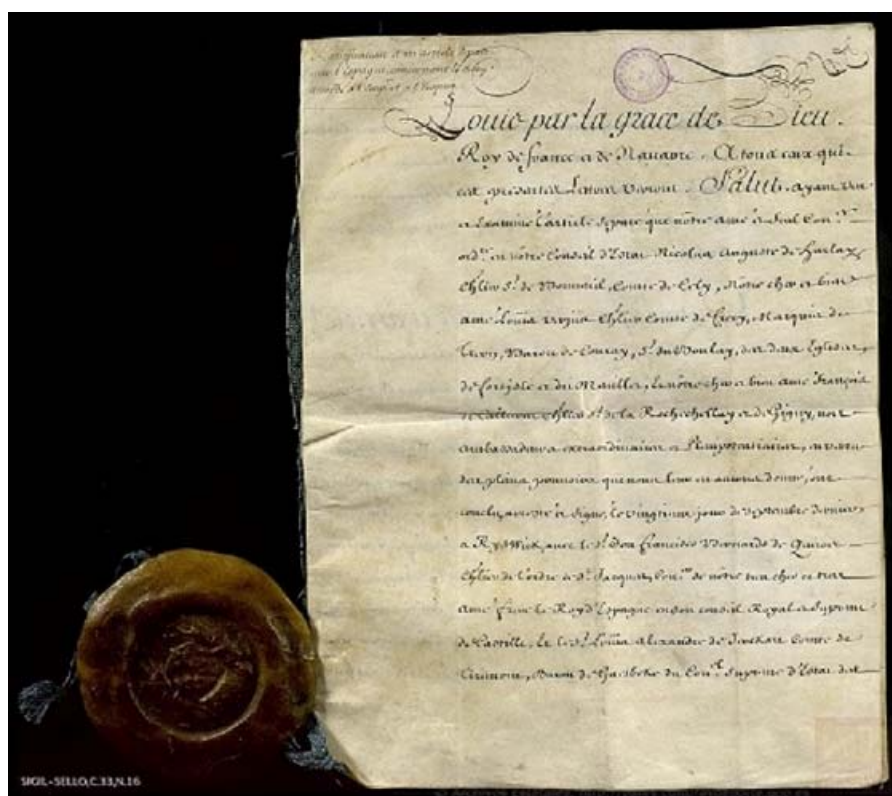 Louis par la grace de Dieu.
Roy de france et de Navarre. A tous ceux qui
ces presentes Lettres verront. Salut. ayant veu
et Examiné l'article separé que nôtre amé et feal Con.er
ord.re en nôtre Conseil d'Estat Nicolas Auguste de Harlay
Ch.lier S.r de Bonneuil, Comte de Cely, Nôtre cher et bien
amé Louis Verjus Ch.lier Comte de Crecy, Marquis de
Treon, Baron de Couvay, S.r du Boulay, des deux Eglises,
de fortisle et du Menillet, Et nôtre cher et bien amé François
de Callieres Ch.lier S.r de la Rochechellay et de Gigny, nos
ambassadeurs extraordinaires et Plenipotentiaires, en vertu
des pleins pouvoirs que nous leur en avions donné, ont
conclu, arresté et signé, le vingtieme jour de septembre dernier
a Ryswick, avec le S.r Don francisco Bernardo de Quiros
Ch.lier de l'ordre de S.t Jacques, Con.er de nôtre tres cher et tres
amé frere le Roy d'Espagne en son conseil Royal et Supreme
de Castille, Et le S.r Louis Alexandre de Comte de
Baron de du Con.el Supreme d'Estat de
SIGIL-SELLO,C.33,N.16